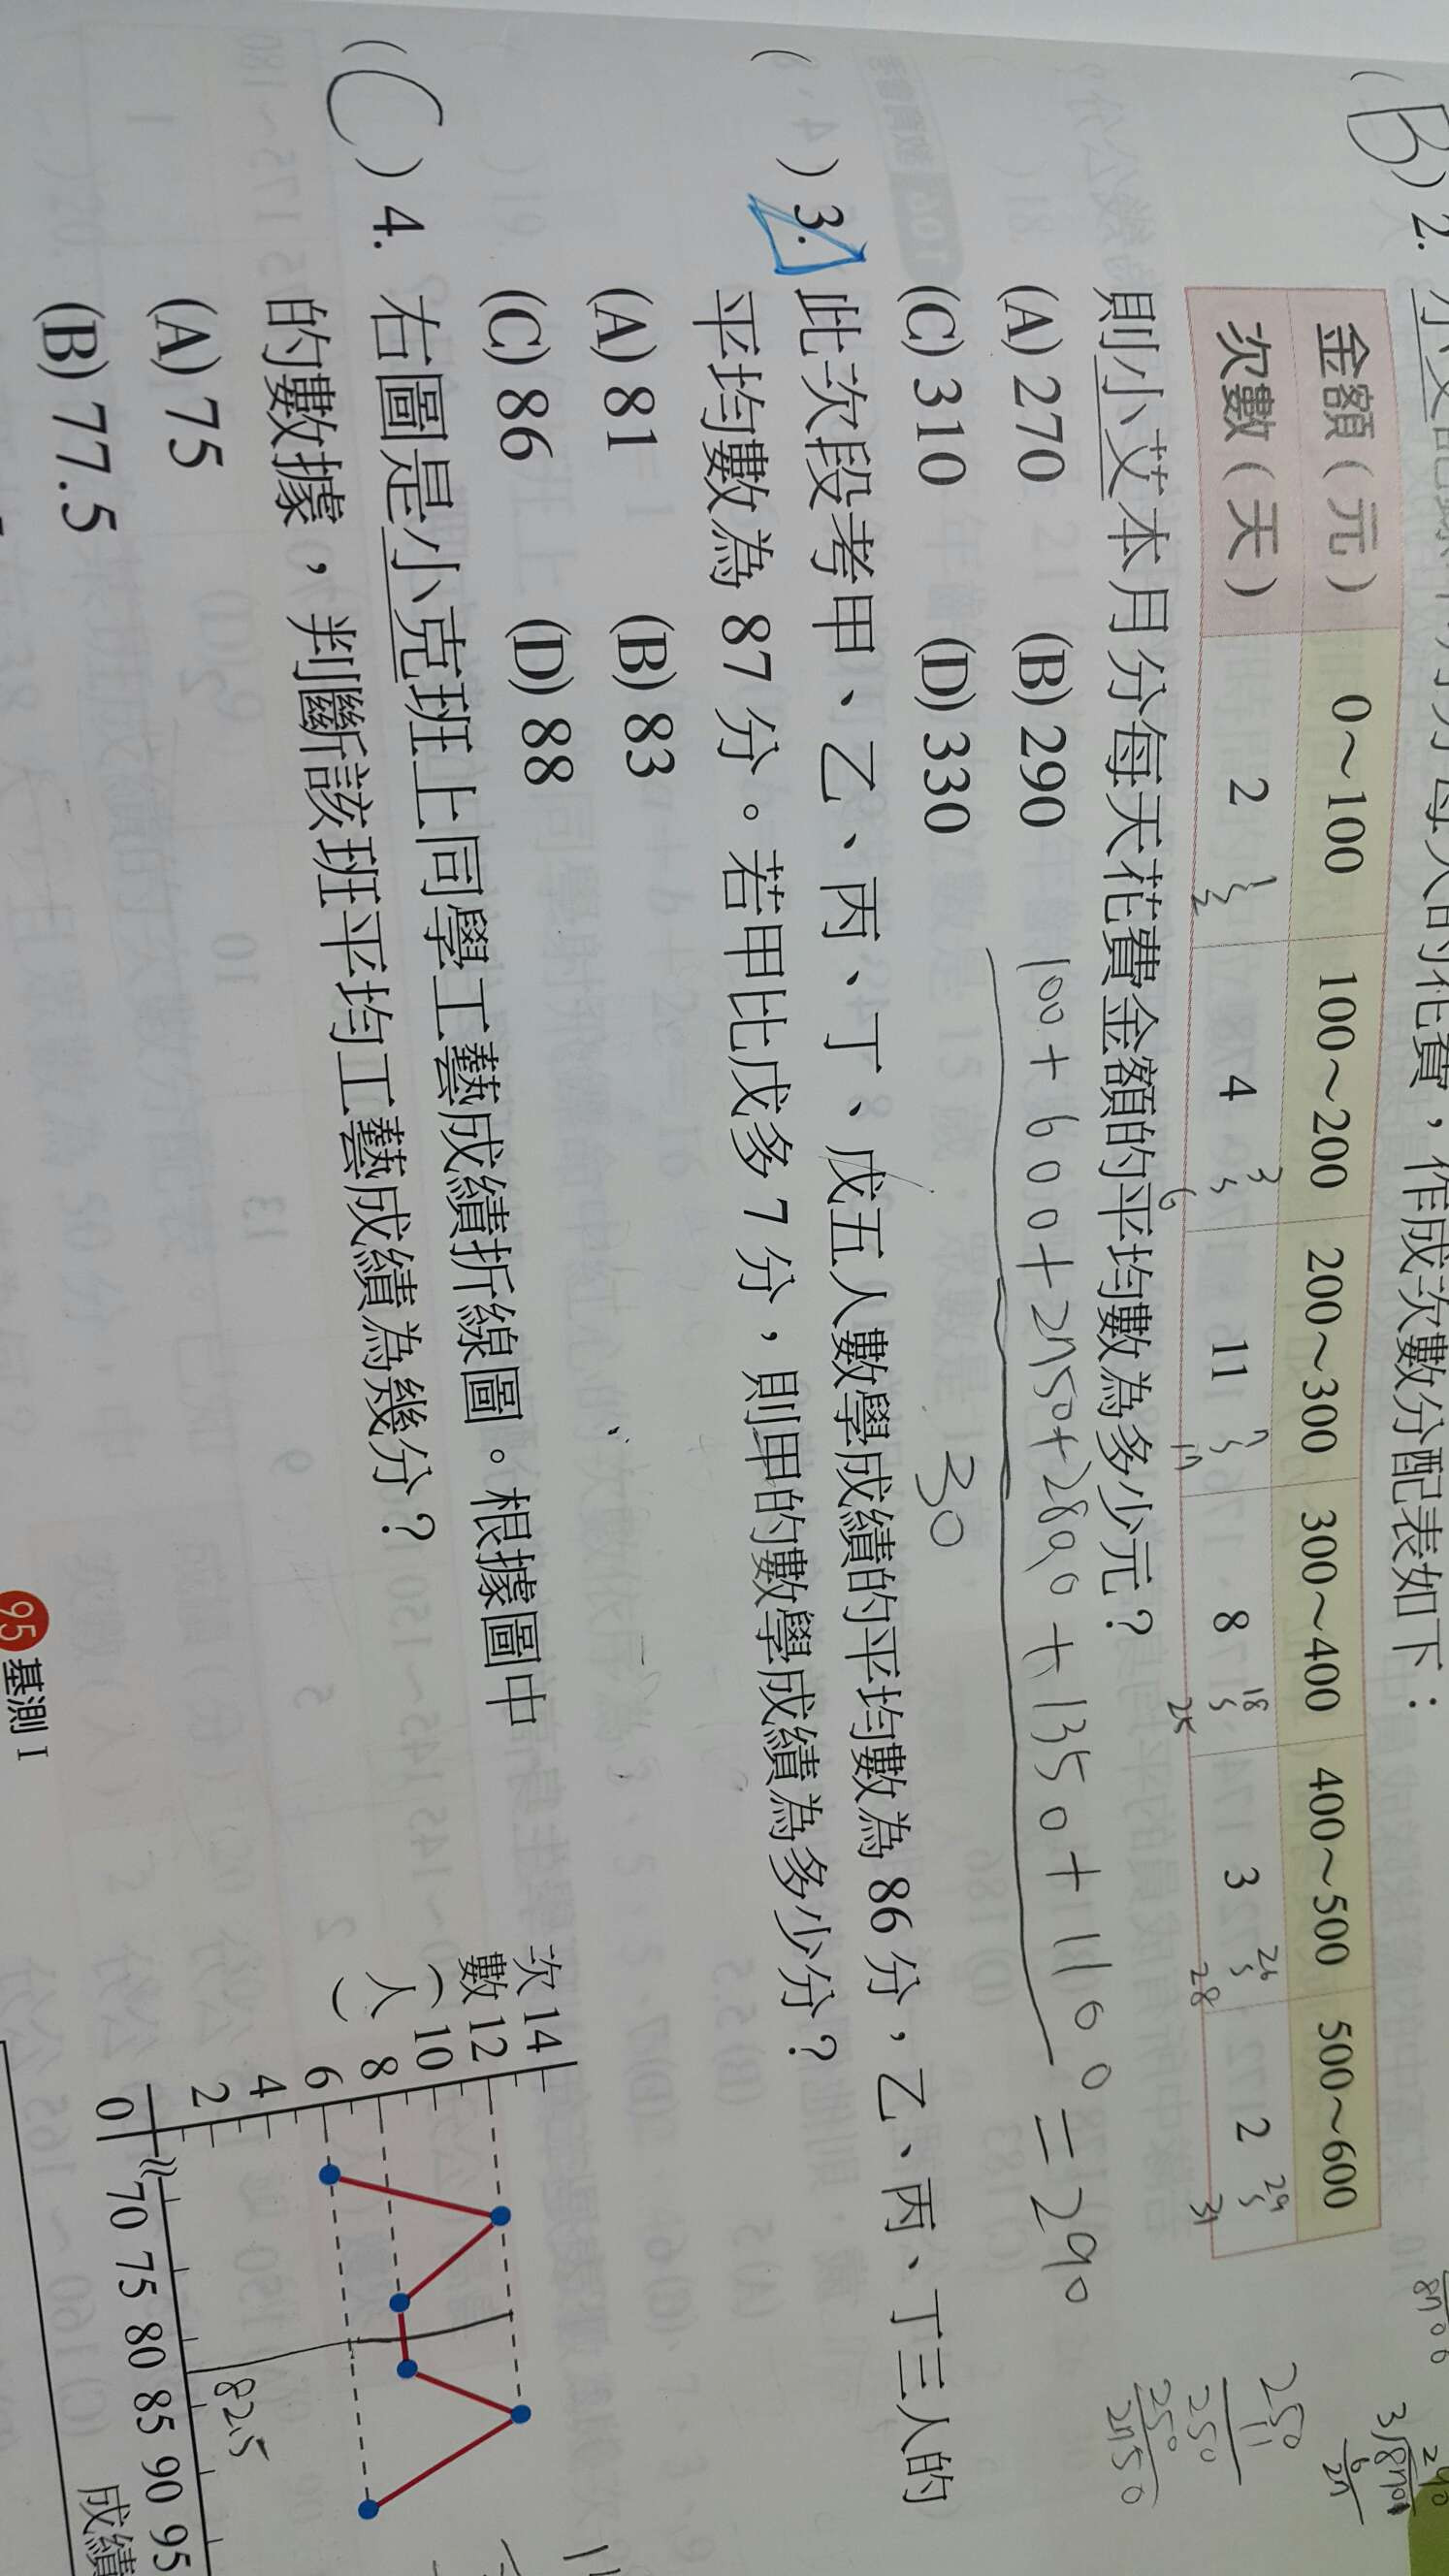 (B) 2. 小艾記錄本月分每天的花費，作成次數分配表如下：
金額（元） 0～100 100～200 200～300 300～400 400～500 500～600
次數（天） 2 4 11 8 3 2
1 2 3 6 7 17 18 25 26 28 29 31
則小艾本月分每天花費金額的平均數為多少元？
(A) 270 (B) 290
100+600+2750+2800+1350+1100 = 290
30
(C) 310 (D) 330
250
11
250
250
2750
( ) 3. 此次段考甲、乙、丙、丁、戊五人數學成績的平均數為 86 分，乙、丙、丁三人的
平均數為 87 分。若甲比戊多 7 分，則甲的數學成績為多少分？
(A) 81 (B) 83
(C) 86 (D) 88
(C) 4. 右圖是小克班上同學工藝成績折線圖。根據圖中
的數據，判斷該班平均工藝成績為幾分？
(A) 75
(B) 77.5
次數（人）
14
12
10
8
6
4
2
0 70 75 80 85 90 95
成績
82.5
95 基測 I